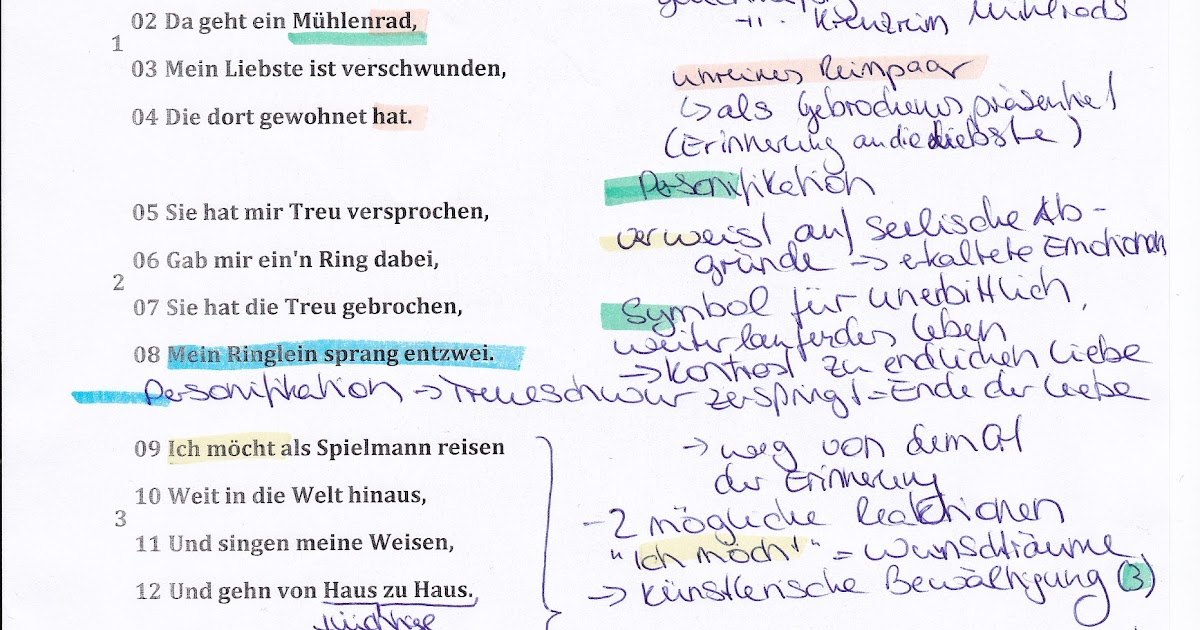 02 Da geht ein Mühlenrad,
-"- Kreuzreim Mühlrads
1
03 Mein Liebste ist verschwunden,
unreines Reimpaar
04 Die dort gewohnet hat.
↳ als Gebrochenes präsentiert
(Erinnerung an die Liebste)
Personifikation
05 Sie hat mir Treu versprochen,
verweist auf seelische Ab-
gründe → erkaltete Emotionen
06 Gab mir ein'n Ring dabei,
2
07 Sie hat die Treu gebrochen,
Symbol für unerbittlich,
weiterlaufendes Leben
08 Mein Ringlein sprang entzwei.
→ Kontrast zu endlichen Liebe
Personifikation → Treueschwur zerspringt = Ende der Liebe
09 Ich möcht als Spielmann reisen
→ weg von dem Ort
der Erinnerung
10 Weit in die Welt hinaus,
3
- 2 mögliche Reaktionen
11 Und singen meine Weisen,
"Ich möcht" = Wunschträume
12 Und gehn von Haus zu Haus.
→ künstlerische Bewältigung (3)